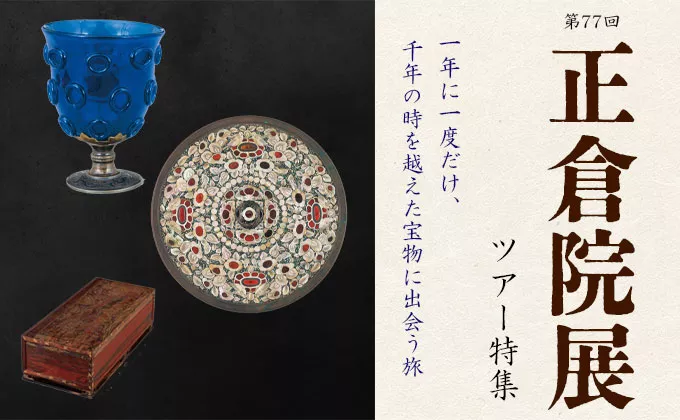 第77回
正倉院展
ツアー特集
一年に一度だけ、
千年の時を越えた宝物に出会う旅